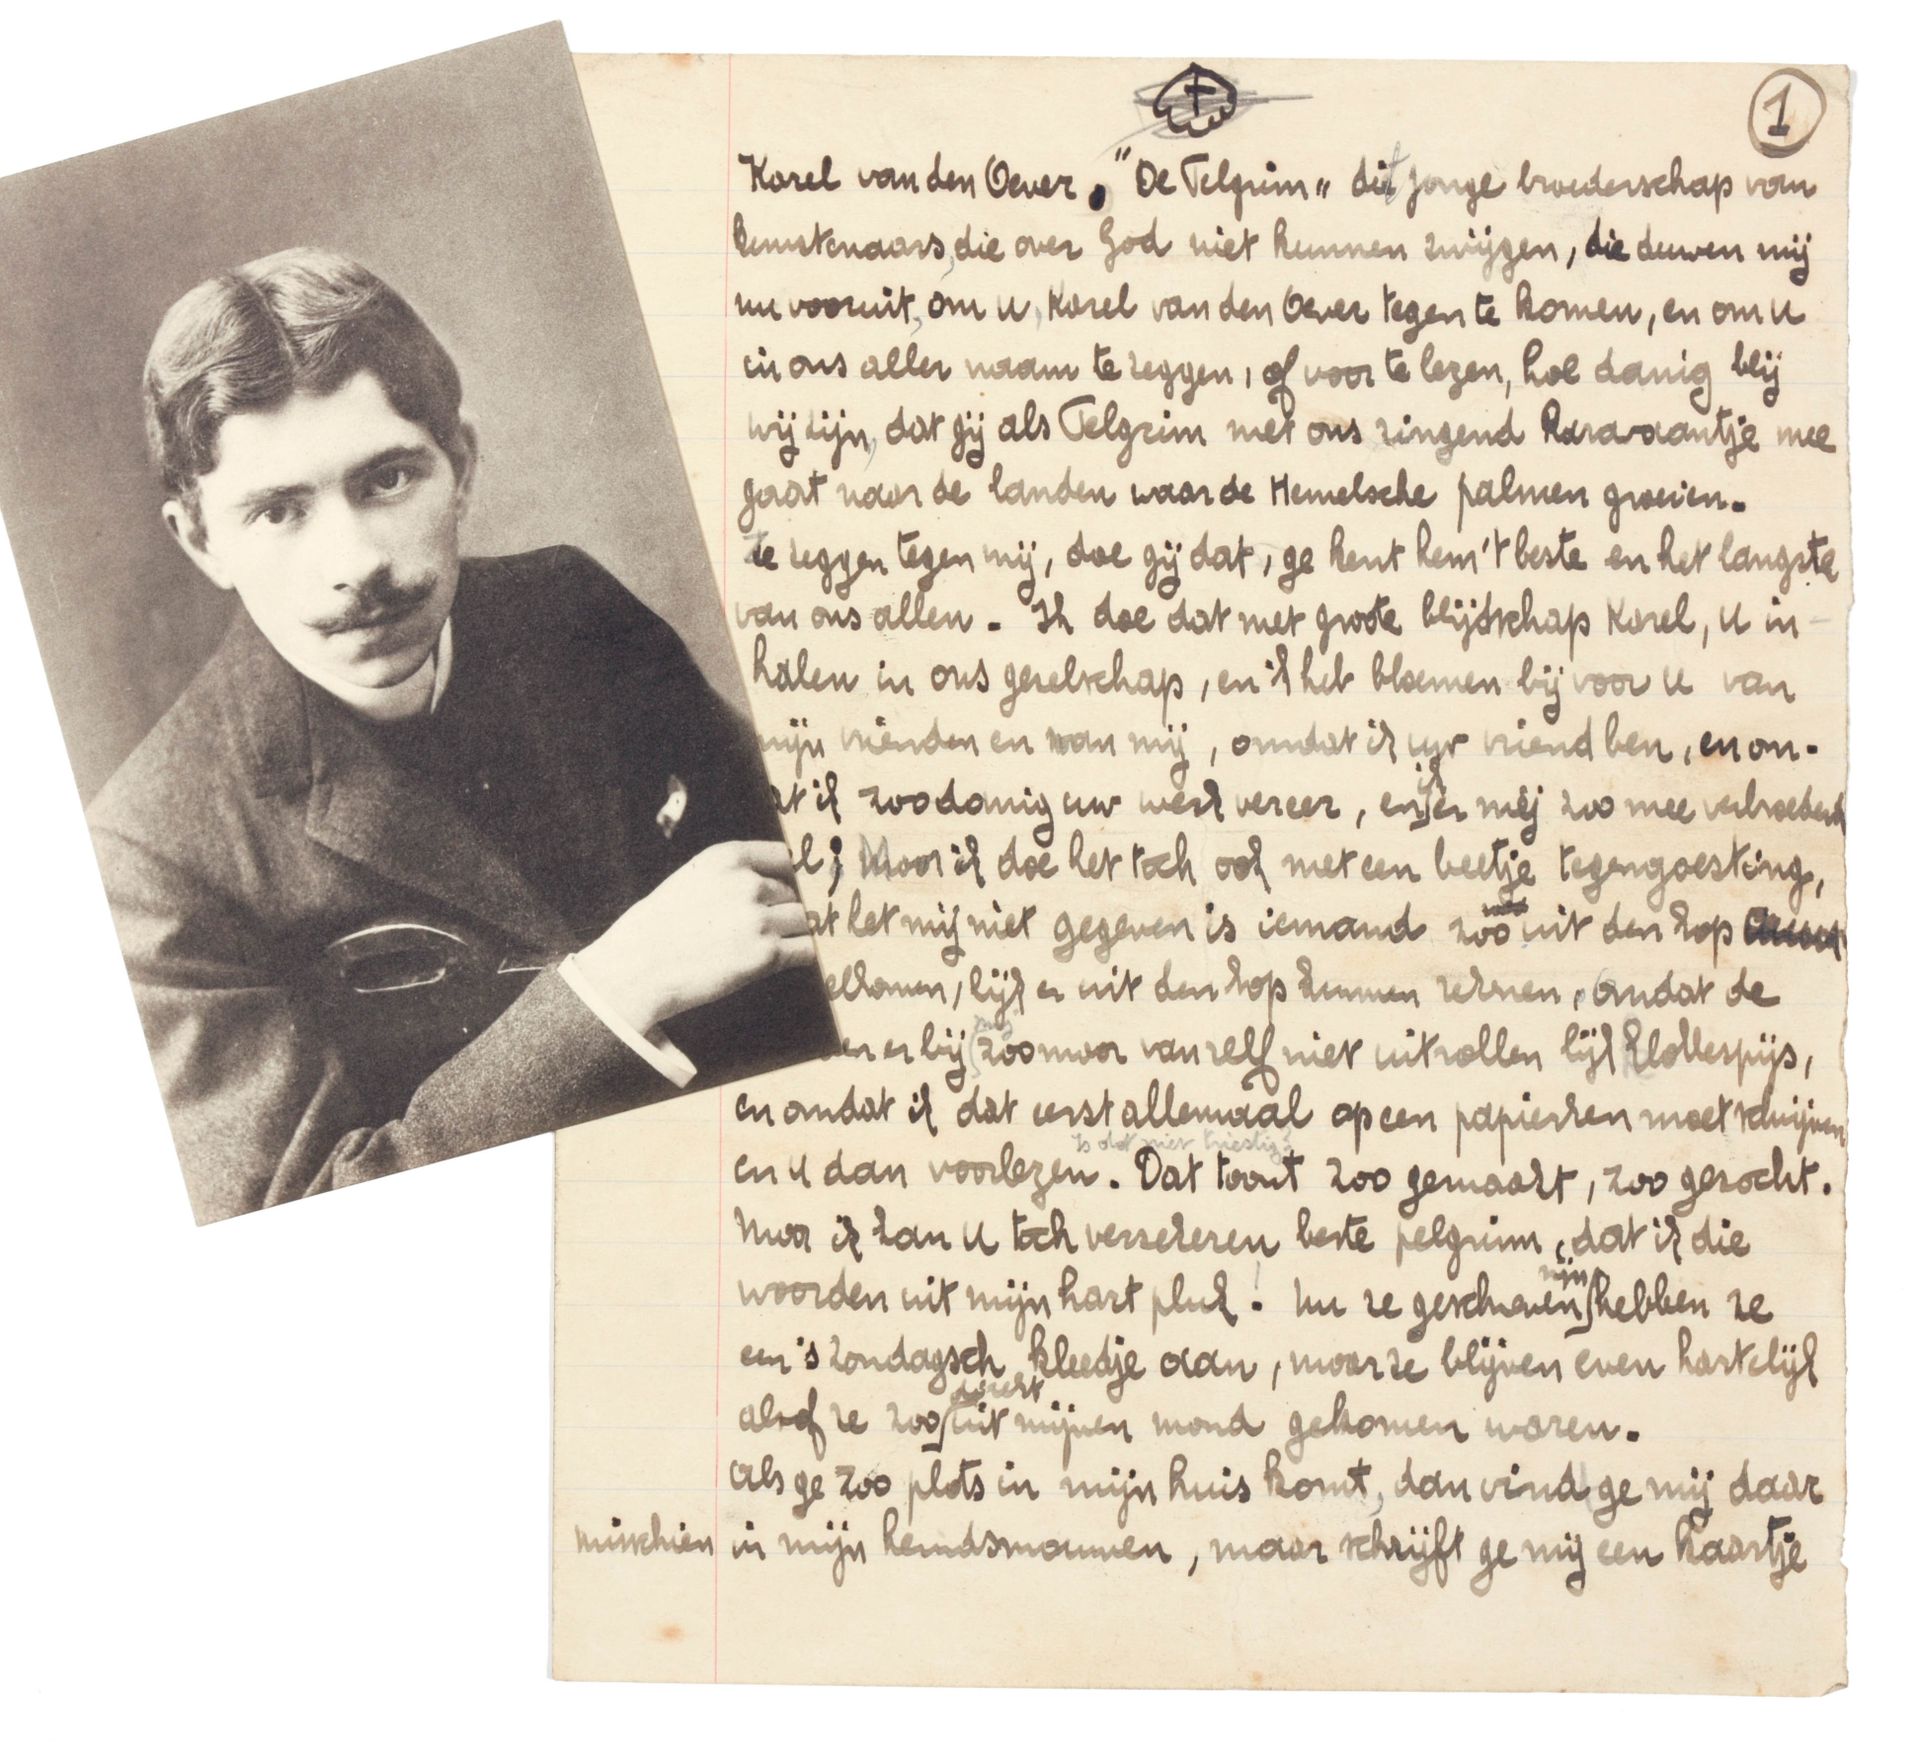 1
Karel van den Oever. "De Pelgrim„ dit jonge broederschap van
kunstenaars, die over God niet kunnen zwijgen, die duwen mij
nu vooruit, om u, Karel van den Oever tegen te komen, en om u
in ons aller naam te zeggen, of voor te lezen, hoe danig blij
wij zijn, dat gij als Pelgrim met ons zingend karavaantje mee
gaat naar de landen waar de Hemelsche palmen groeien.
Ze zeggen tegen mij, doe gij dat, ge kent hem 't beste en het langste
van ons allen. Ik doe dat met groote blijdschap Karel, u in-
halen in ons gezelschap, en 'k heb bloemen bij voor u van
mijn vrienden en van mij, omdat ik uw vriend ben, en om-
at ik zoodanig uw werk vereer, en ik er mij zoo mee verbroederd
l; Maar ik doe het toch ook met een beetje tegengoesting,
at het mij niet gegeven is iemand zoo uit den kop
elkomen, lijk er uit den kop kunnen rekenen, omdat de
en er bij mij zoomaar vanzelf niet uitrollen lijk klottespijs,
en omdat ik dat eerst allemaal op een papierken moet schrijven
Is dat niet triestig?
en u dan voorlezen. Dat toont zoo gemaakt, zoo gezocht.
Maar ik kan u toch verzekeren beste pelgrim, dat ik die
woorden uit mijn hart pluk! Nu ze geschreven zijn hebben ze
een 's zondagsch kleedje aan, maar ze blijven even hartelijk
alsof ze zoo direkt uit mijnen mond gekomen waren.
Als ge zoo plots in mijn huis komt, dan vind ge mij daar
misschien in mijn hemdsmouwen, maar schrijft ge mij een kaartje